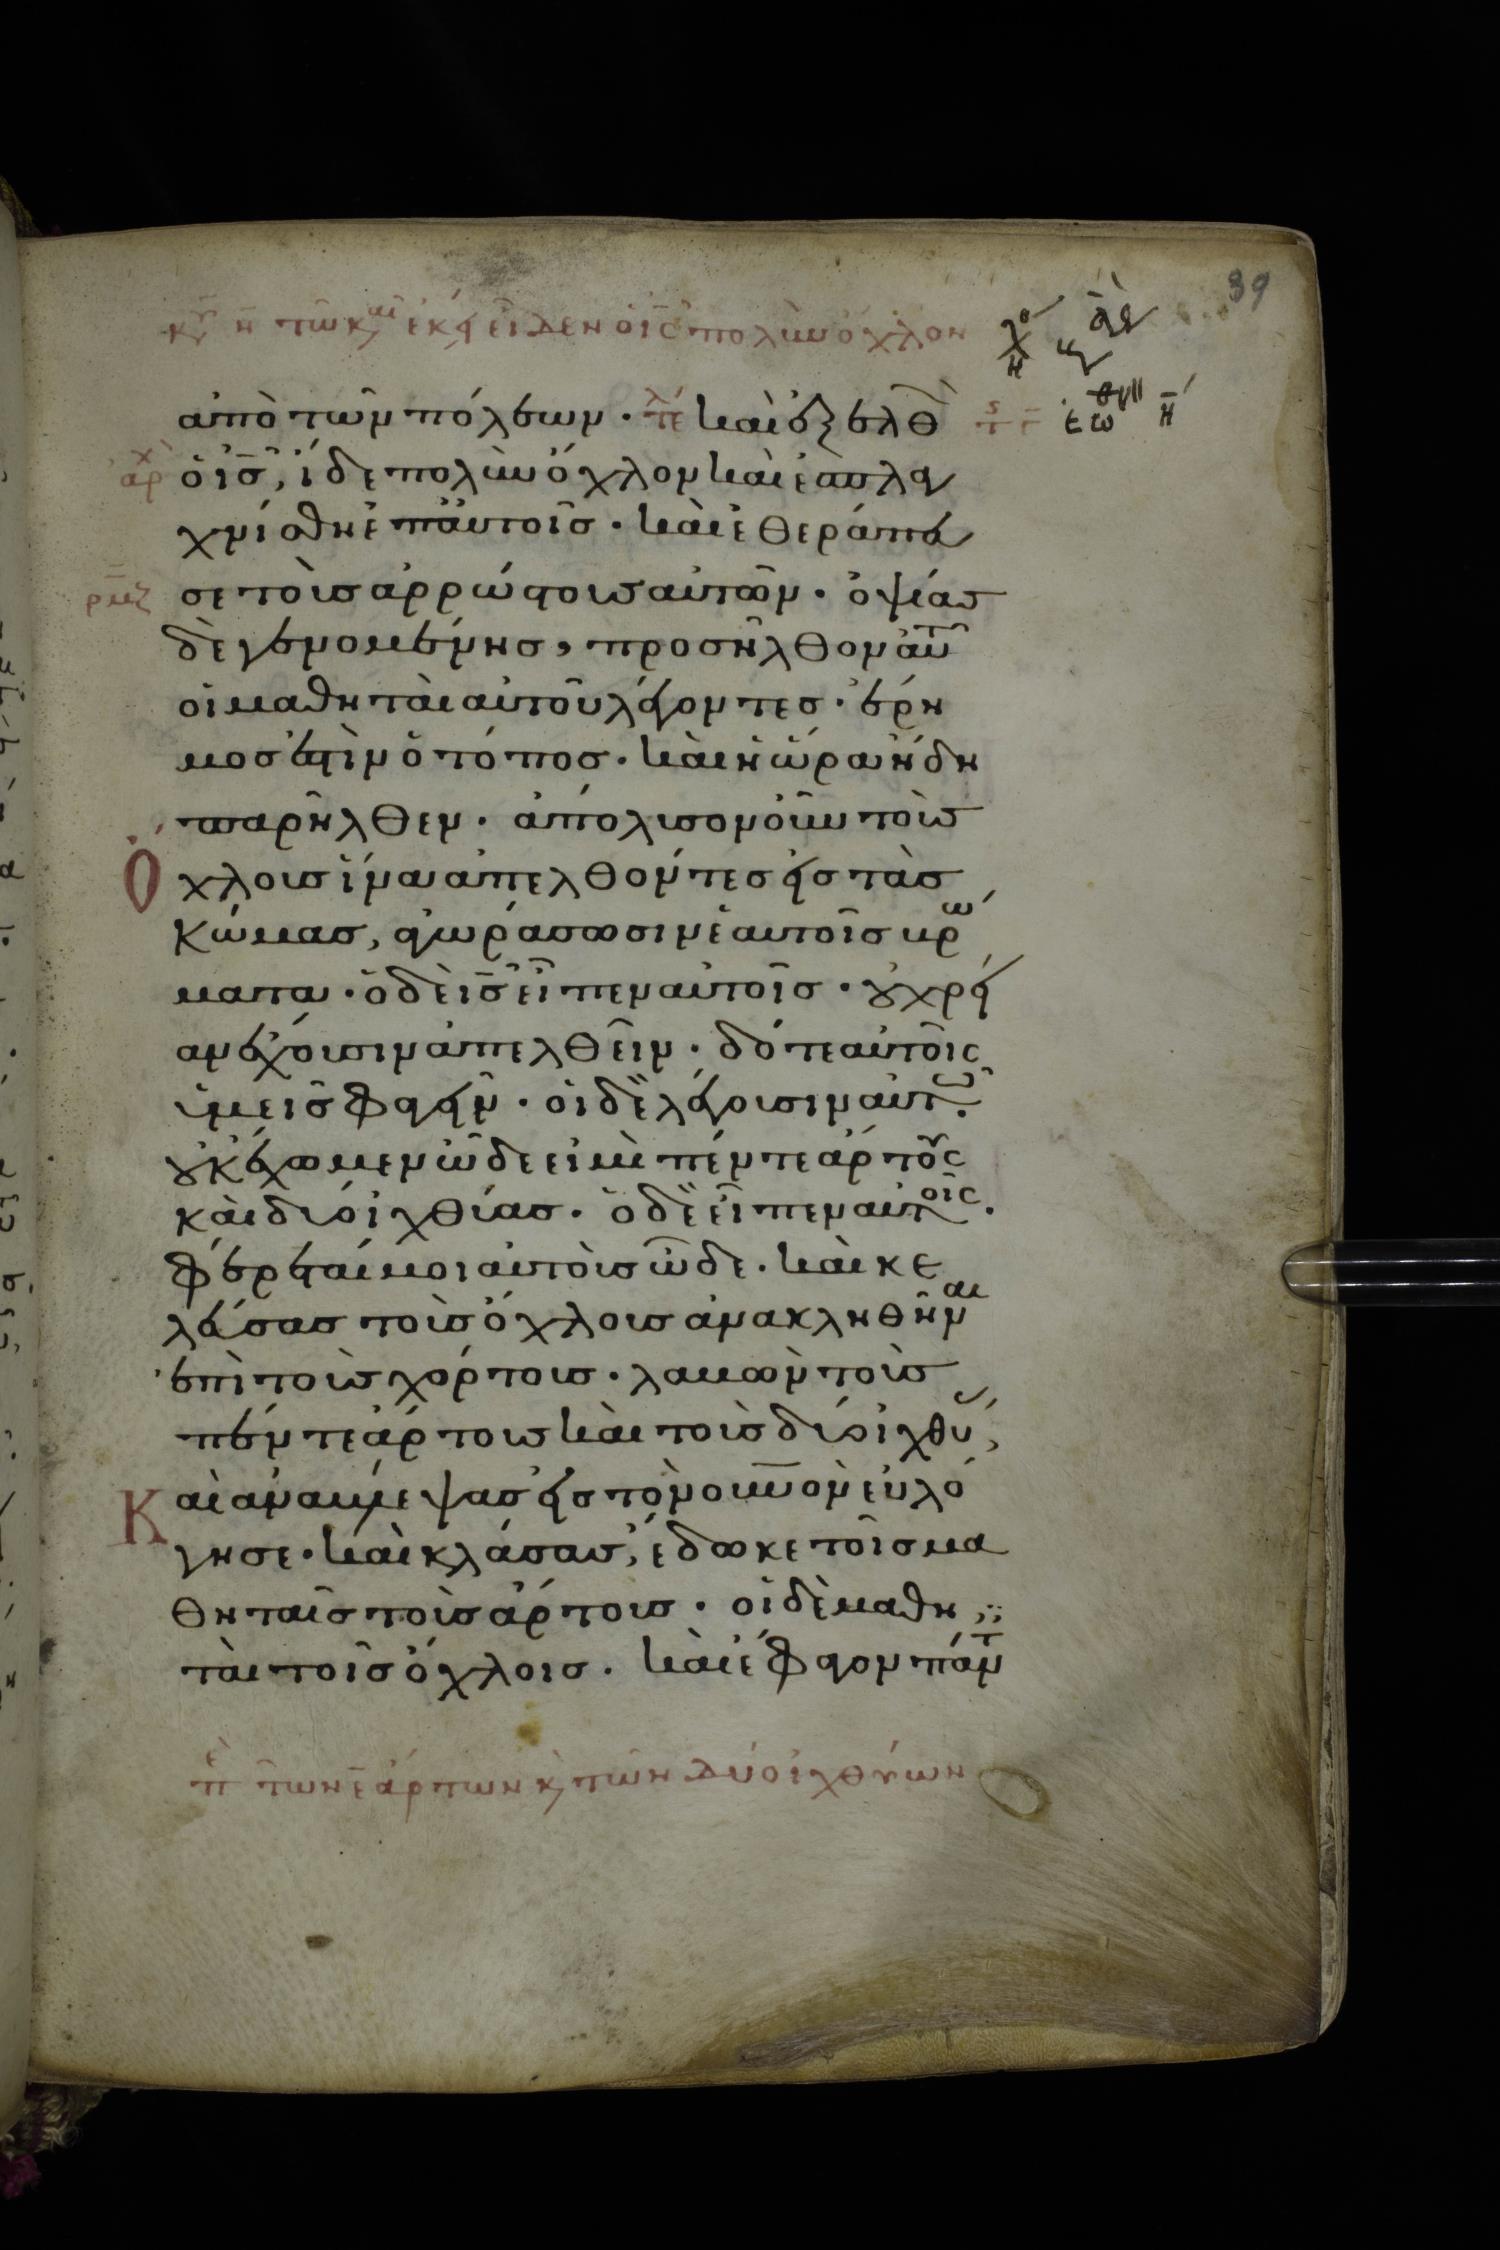 39
κυ η τω κ,αι εκ,ει ειδεν ὁ ις πολὺν ὄχλον
ἀπὸ τῶν πόλεων · τε καὶ ἐξελθ
αρχ ὁ ις, ἰδε πολὺν ὄχλον καὶ ἐσπλα
χνίσθη ἐπ αὐτοῖσ · καὶ ἐθεράπευ
ρμζ σε τοὺσ ἀρρώστουσ αὐτῶν · ὀψίασ
δὲ γενομένησ, προσῆλθον αὐτ
οἱ μαθηταὶ αὐτοῦ λέγοντεσ · ἔρη
μοσ ἐστὶν ὁ τόποσ · καὶ ἡ ὥρα ἤδη
παρῆλθεν · ἀπόλυσον οὖν τοὺσ
Ὄχλουσ ἵνα ἀπελθόντεσ εἰσ τὰσ
κώμασ, ἀγωράσωσιν ἑαυτοῖσ βρώ
ματα · ὁ δὲ ις εἶπεν αὐτοῖσ · οὐ χρεί
αν ἔχουσιν ἀπελθεῖν · δότε αὐτοῖς
ὑμεῖσ φαγεῖν · οἱ δὲ λέγουσιν αὐτῶ ·
οὐκ ἔχωμεν ὧδε εἰ μὴ πέντε ἄρτους
καὶ δύο ἰχθύασ · ὁ δὲ εἶπεν αὐτοῖς ·
φέρεταί μοι αὐτοὺσ ὧδε · καὶ κε
λεύσασ τοὺσ ὄχλουσ ἀνακληθῆναι
ἐπὶ τοὺσ χόρτουσ · λαβὼν τοὺσ
πέντε ἄρτουσ καὶ τοὺσ δύο ἰχθύ,
Καὶ ἀναβλέψασ εἰσ τὸν οὐνὸν εὐλό
γησε · καὶ κλάσασ, ἔδωκε τοῖσ μα
θηταῖσ τοὺσ ἄρτουσ · οἱ δὲ μαθη
ταὶ τοῖσ ὄχλοισ · καὶ ἔφαγον πάντ
π τῶν ε ἄρτων κ, τῶν δύο ἰχθύων